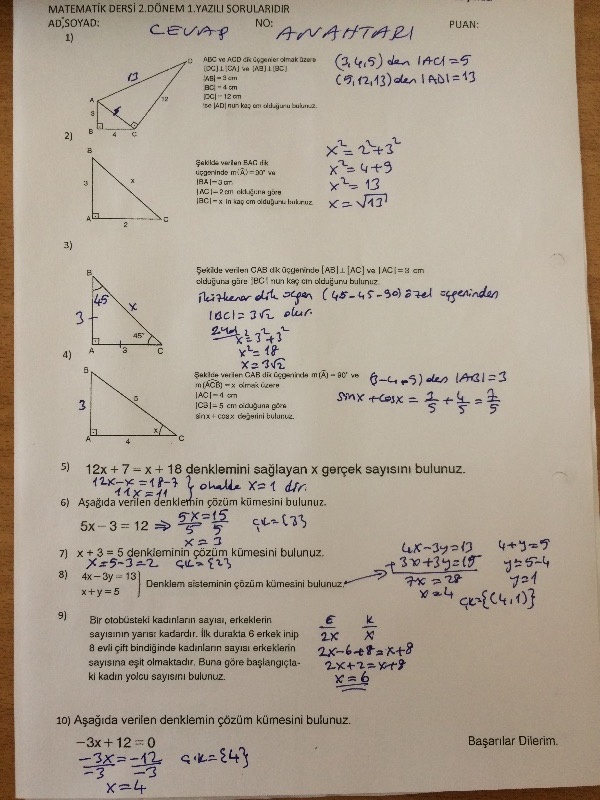 MATEMATİK DERSİ 2.DÖNEM 1.YAZILI SORULARIDIR
AD,SOYAD: CEVAP NO: ANAHTARI PUAN:
1)
ABC ve ACD dik üçgenler olmak üzere
[DC]⊥[CA] ve [AB]⊥[BC]
|AB|=3 cm
|BC|=4 cm
|DC|=12 cm
ise |AD| nun kaç cm olduğunu bulunuz.
D
13
12
A
3
5
B 4 C
(3,4,5) den |AC|=5
(5,12,13) den |AD|=13
2)
B
3 x
A 2 C
Şekilde verilen BAC dik
üçgeninde m(A)=90° ve
|BA|=3 cm
|AC|=2 cm olduğuna göre
|BC|=x in kaç cm olduğunu bulunuz.
x²=2²+3²
x²=4+9
x²=13
x=√13
3)
B
45
x
3
45°
A 3 C
Şekilde verilen CAB dik üçgeninde [AB]⊥[AC] ve |AC|=3 cm
olduğuna göre |BC| nun kaç cm olduğunu bulunuz.
ikizkenar dik üçgen (45-45-90) özel üçgeninden
|BC|=3√2 olur.
2.yol
x²=3²+3²
x²=18
x=3√2
4)
B
3 5
x
A 4 C
Şekilde verilen CAB dik üçgeninde m(A)=90° ve
m(ACB)=x olmak üzere
|AC|=4 cm
|CB|=5 cm olduğuna göre
sinx+cosx değerini bulunuz.
(3-4-5) den |AB|=3
sinx+cosx=3/5+4/5=7/5
5) 12x + 7 = x + 18 denklemini sağlayan x gerçek sayısını bulunuz.
12x-x=18-7
11x=11 } o halde x=1 dir.
6) Aşağıda verilen denklemin çözüm kümesini bulunuz.
5x – 3 = 12 ⇒ 5x/5=15/5 Ç.K={3}
x=3
7) x + 3 = 5 denkleminin çözüm kümesini bulunuz.
x=5-3=2 Ç.K={2}
8) 4x – 3y = 13
x + y = 5 } Denklem sisteminin çözüm kümesini bulunuz.
4x-3y=13
+ 3x+3y=15
7x=28
x=4
4+y=5
y=5-4
y=1
Ç.K={(4,1)}
9)
Bir otobüsteki kadınların sayısı, erkeklerin
sayısının yarısı kadardır. İlk durakta 6 erkek inip
8 evli çift bindiğinde kadınların sayısı erkeklerin
sayısına eşit olmaktadır. Buna göre başlangıçta-
ki kadın yolcu sayısını bulunuz.
E K
2x x
2x-6+8=x+8
2x+2=x+8
x=6
10) Aşağıda verilen denklemin çözüm kümesini bulunuz.
–3x + 12 = 0
-3x/-3=-12/-3 Ç.K={4}
x=4
Başarılar Dilerim.